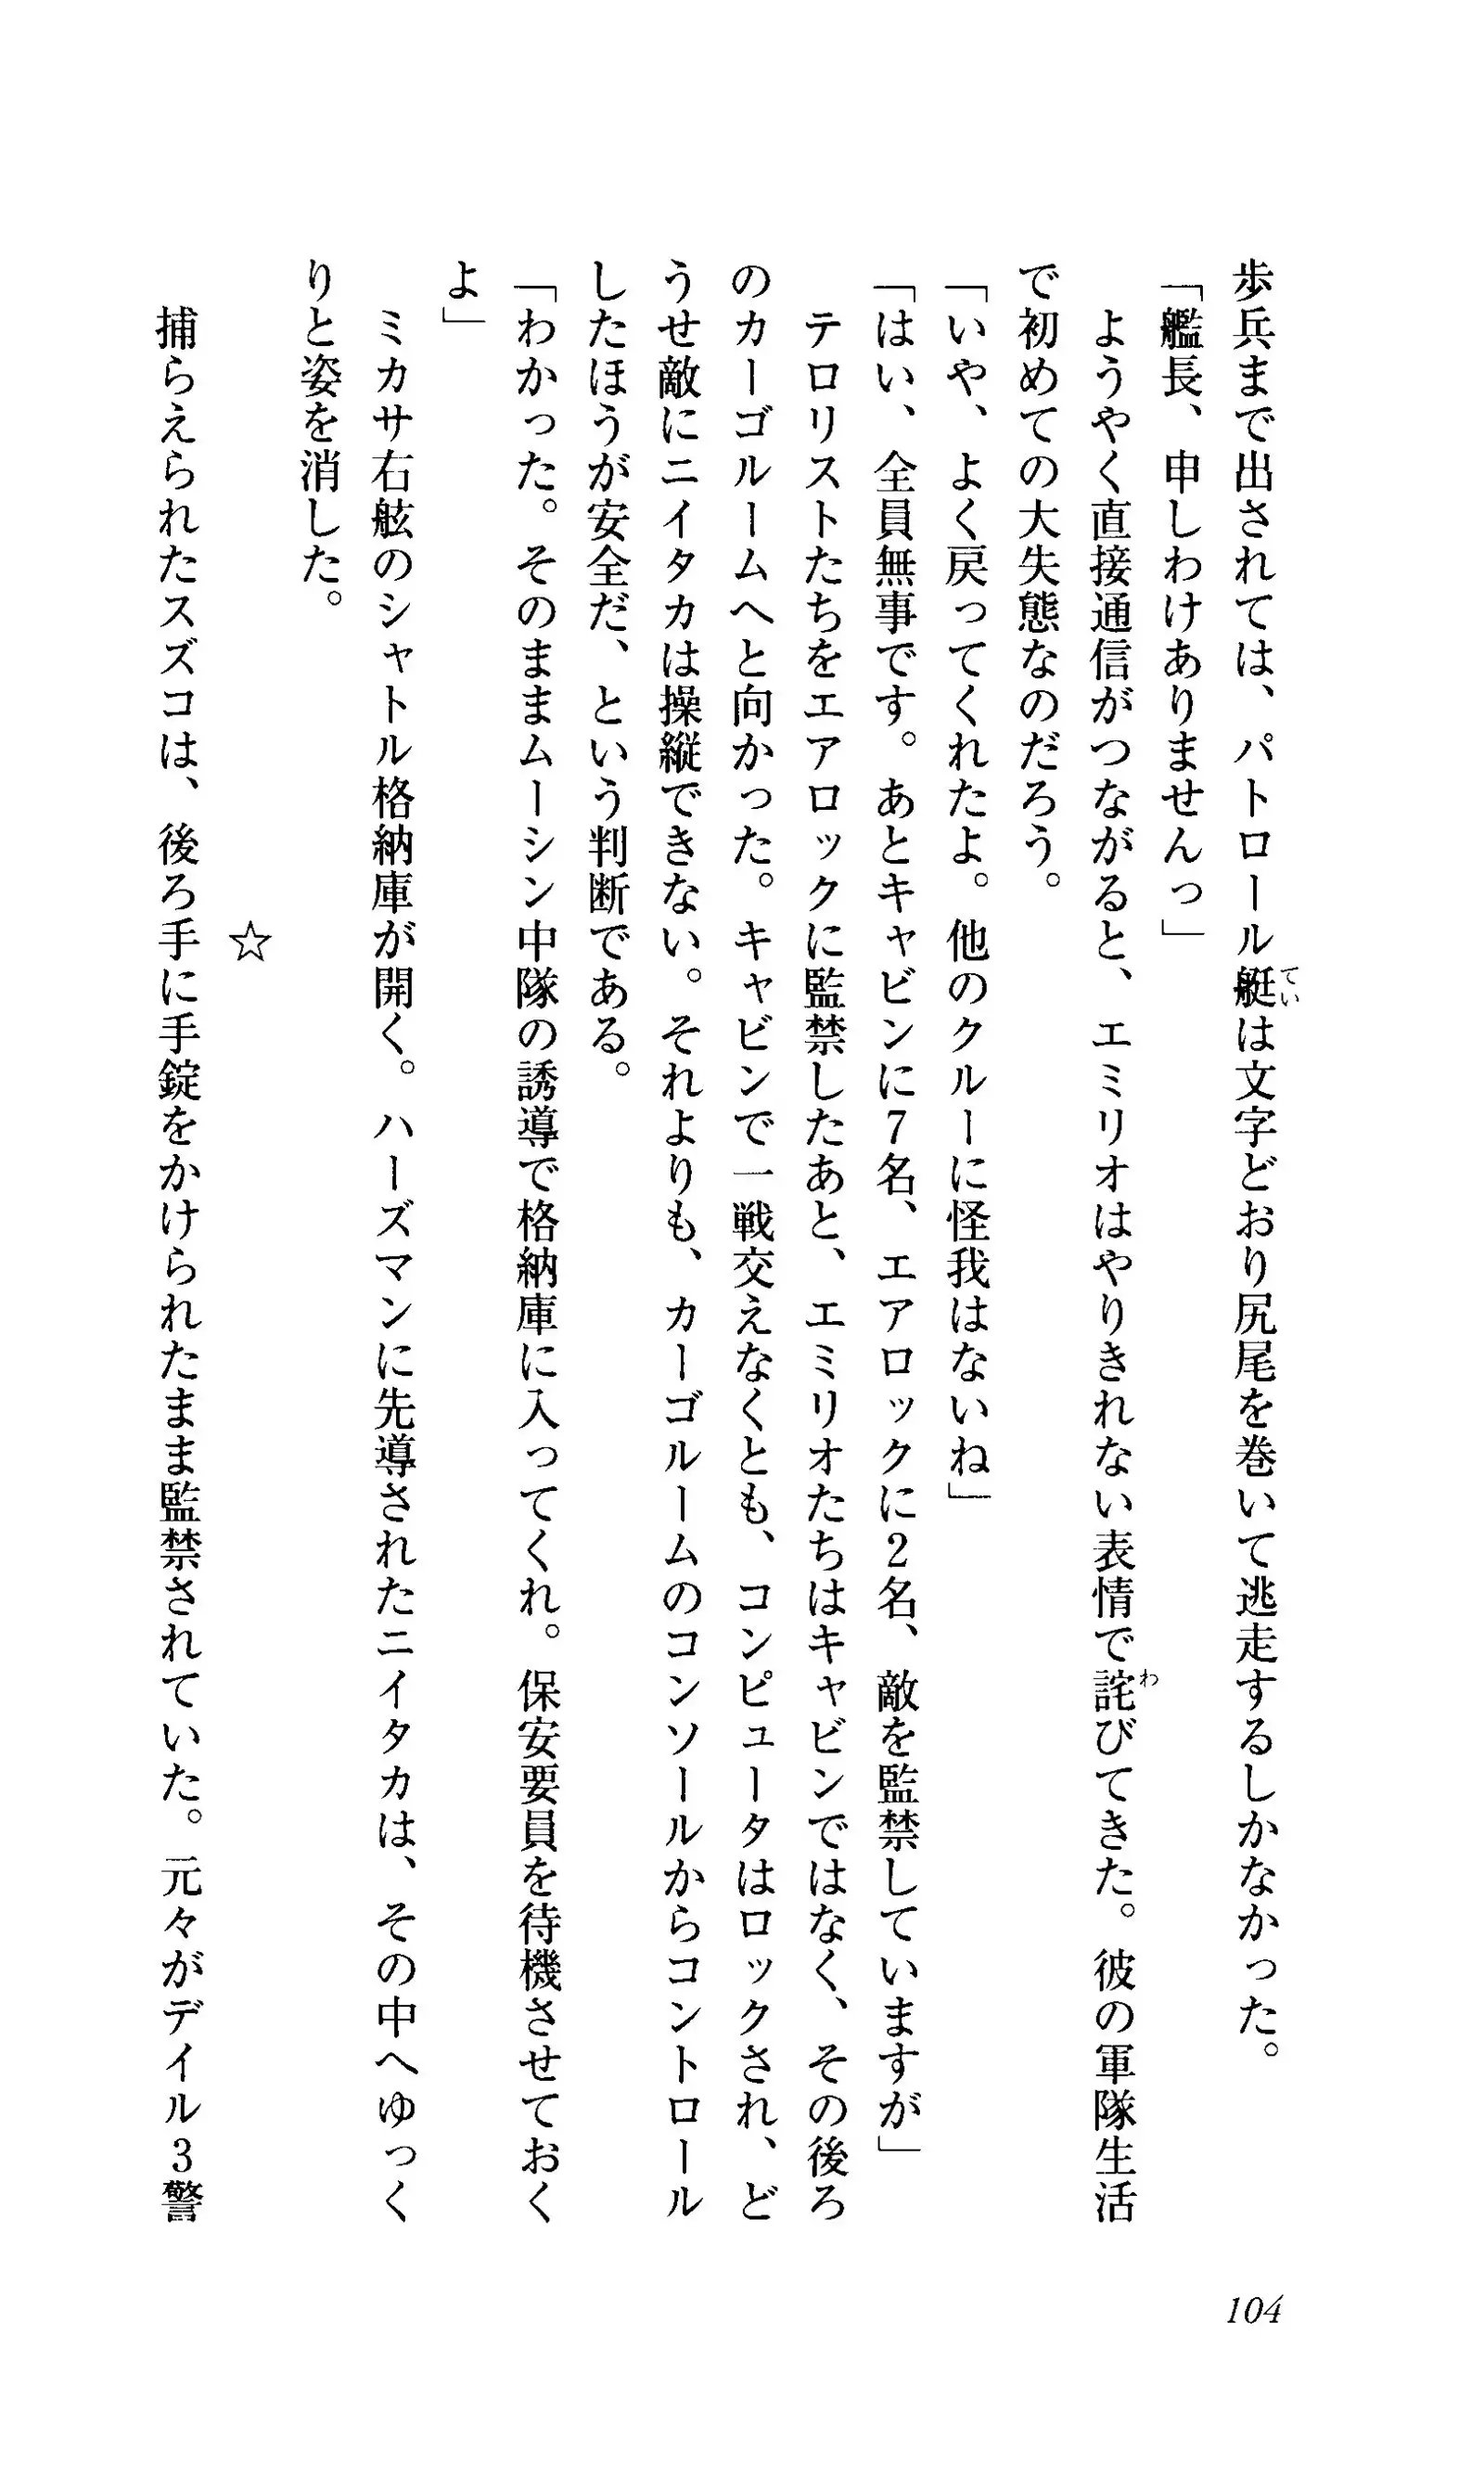 歩兵まで出されては、パトロール艇は文字どおり尻尾を巻いて逃走するしかなかった。
てい
「艦長、申しわけありませんっ」
　ようやく直接通信がつながると、エミリオはやりきれない表情で詫びてきた。彼の軍隊生活
わ
で初めての大失態なのだろう。
「いや、よく戻ってくれたよ。他のクルーに怪我はないね」
「はい、全員無事です。あとキャビンに7名、エアロックに2名、敵を監禁していますが」
　テロリストたちをエアロックに監禁したあと、エミリオたちはキャビンではなく、その後ろ
のカーゴルームへと向かった。キャビンで一戦交えなくとも、コンピュータはロックされ、ど
うせ敵にニイタカは操縦できない。それよりも、カーゴルームのコンソールからコントロール
したほうが安全だ、という判断である。
「わかった。そのままムーシン中隊の誘導で格納庫に入ってくれ。保安要員を待機させておく
よ」
　ミカサ右舷のシャトル格納庫が開く。ハーズマンに先導されたニイタカは、その中へゆっく
りと姿を消した。
☆
　捕らえられたスズコは、後ろ手に手錠をかけられたまま監禁されていた。元々がデイル3警
104